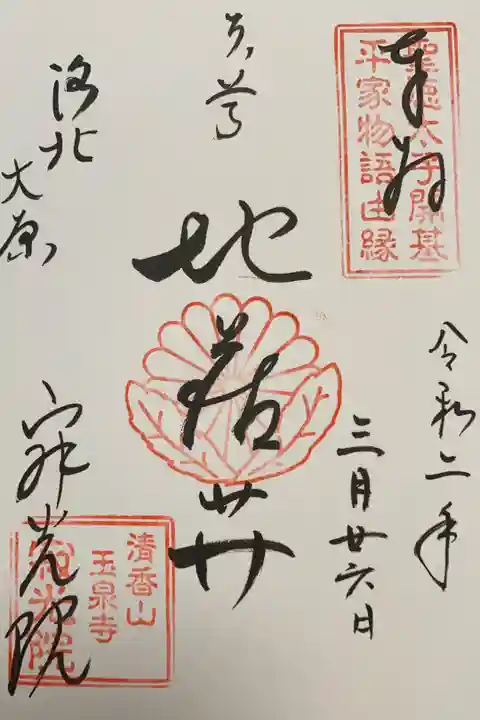 奉拝
聖徳太子開基
平家物語由縁
令和二年
三月廿六日
本尊
地蔵菩薩
洛北
大原
寂光院
清香山
玉泉寺
寂光院